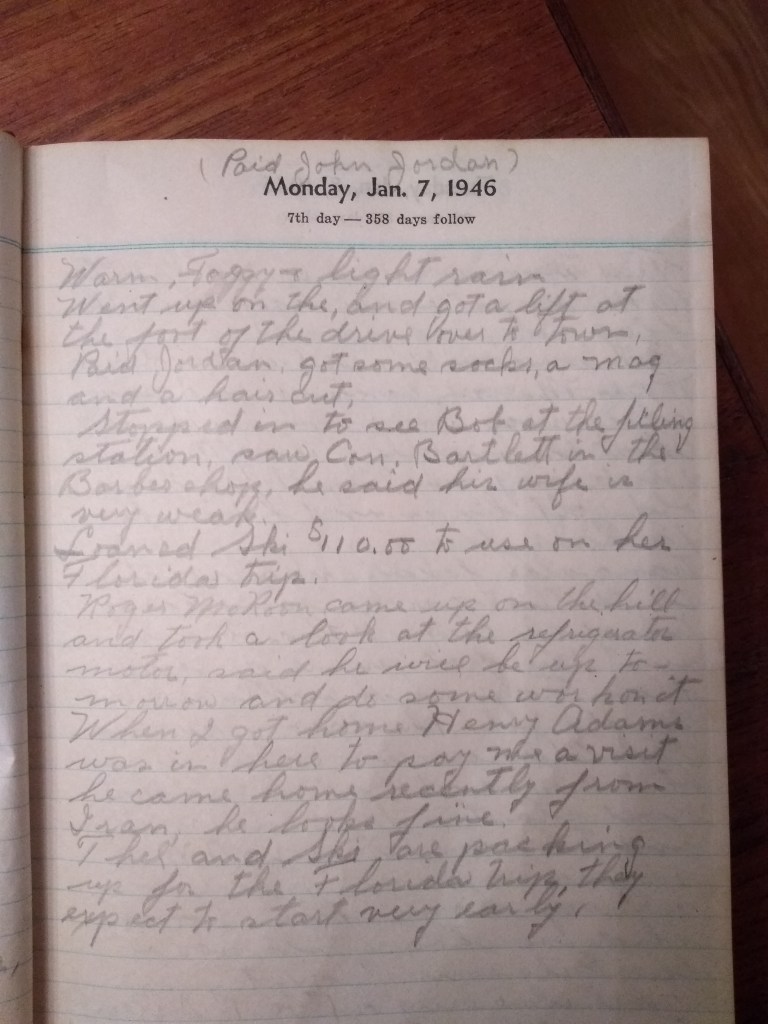 (Paid John Jordan)
Monday, Jan. 7, 1946
7th day — 358 days follow
Warm, Foggy - light rain
Went up on the, and got a lift at
the foot of the drive over to town,
Paid Jordan, got some socks, a mag
and a hair cut,
Stopped in to see Bob at the filling
station, saw Con. Bartlett in the
Barber shop, he said his wife is
very weak.
Loaned Ski $110.00 to use on her
Florida trip.
Roger came up on the hill
and took a look at the refrigerator
motor, said he will be up to-
morrow and do some work on it
When I got home Henry Adams
was in here to pay me a visit
he came home recently from
Iran, he looks fine.
Thel and Ski are packing
up for the Florida trip, they
expect to start very early.